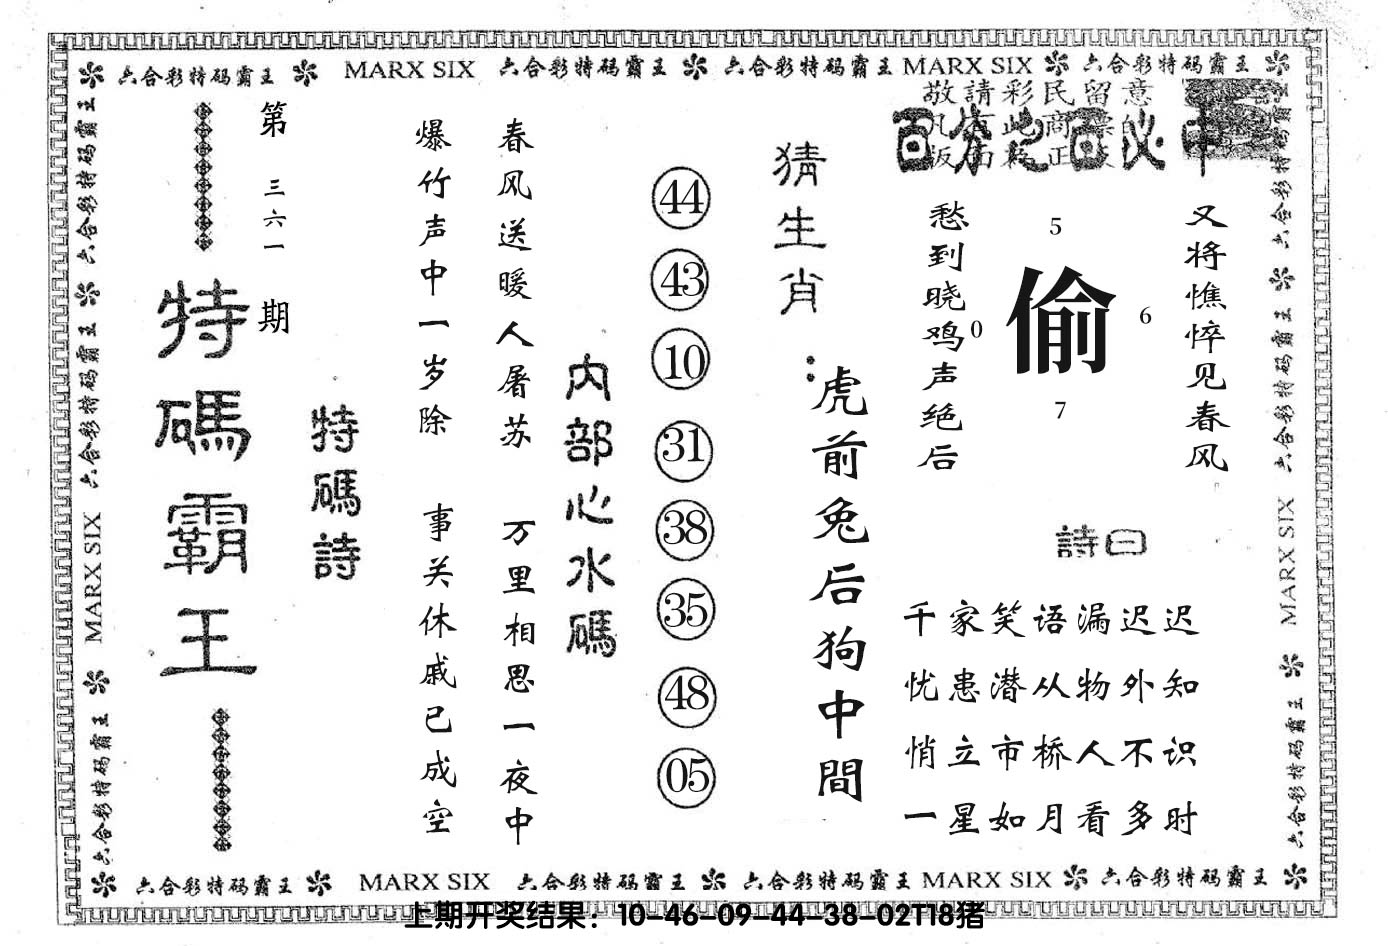 六合彩特码霸王 MARX SIX 六合彩特码霸王 六合彩特码霸王 MARX SIX 六合彩特码霸王
敬請彩民留意
百分之百必中
又将憔悴见春风
愁到晓鸡声绝后
5
0
偷
6
7
詩曰
千家笑语漏迟迟
忧患潜从物外知
悄立市桥人不识
一星如月看多时
猜生肖：
虎前兔后狗中間
44
43
10
31
38
35
48
05
内部心水碼
春风送暖人屠苏
万里相思一夜中
爆竹声中一岁除
事关休戚已成空
特碼詩
第三六一期
特碼霸王
六合彩特码霸王 六合彩特码霸王 MARX SIX 六合彩特码霸王
六合彩特码霸王 六合彩特码霸王 MARX SIX 六合彩特码霸王
六合彩特码霸王 MARX SIX 六合彩特码霸王 六合彩特码霸王 MARX SIX 六合彩特码霸王
上期开奖结果：10-46-09-44-38-02T18猪